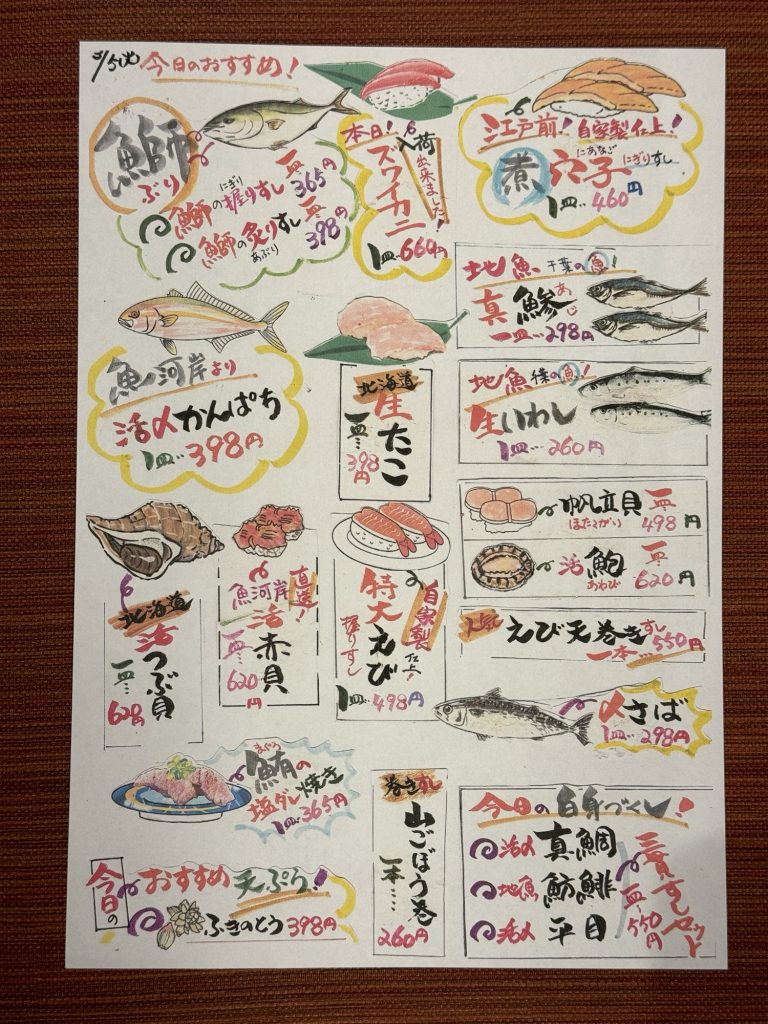 今日のおすすめ!
鰤
ぶり
鰤の握りすし 一皿 365円
にぎり
鰤の炙りすし 一皿 398円
あぶり
本日!
入荷出来ました!
ズワイカニ
1皿…664円
江戸前!自家製仕上!
煮穴子にぎりすし
にあなご
1皿…460円
地魚 千葉の魚!
真鯵
あじ
一皿…298円
魚河岸より
活〆かんぱち
1皿…398円
北海道
生たこ
一皿…398円
地魚
の魚!
生いわし
1皿…260円
帆立貝 一皿 498円
ほたてがい
活鮑 一皿 620円
あわび
北海道
活つぶ貝
一皿…
魚河岸直送!
活赤貝
一皿…620円
自家製仕上!
特大えび
握りすし
1皿…498円
人気 えび天巻きすし
一本…550円
〆さば
1皿…298円
鮪の
まぐろ
塩ダレ焼き
1皿…365円
巻きすし
山ごぼう巻
一本…260円
今日の白身づくし!
活〆 真鯛
地魚 魴鮄
活〆 平目
三貫すしセット
一皿…550円
今日のおすすめ天ぷら!
ふきのとう 398円